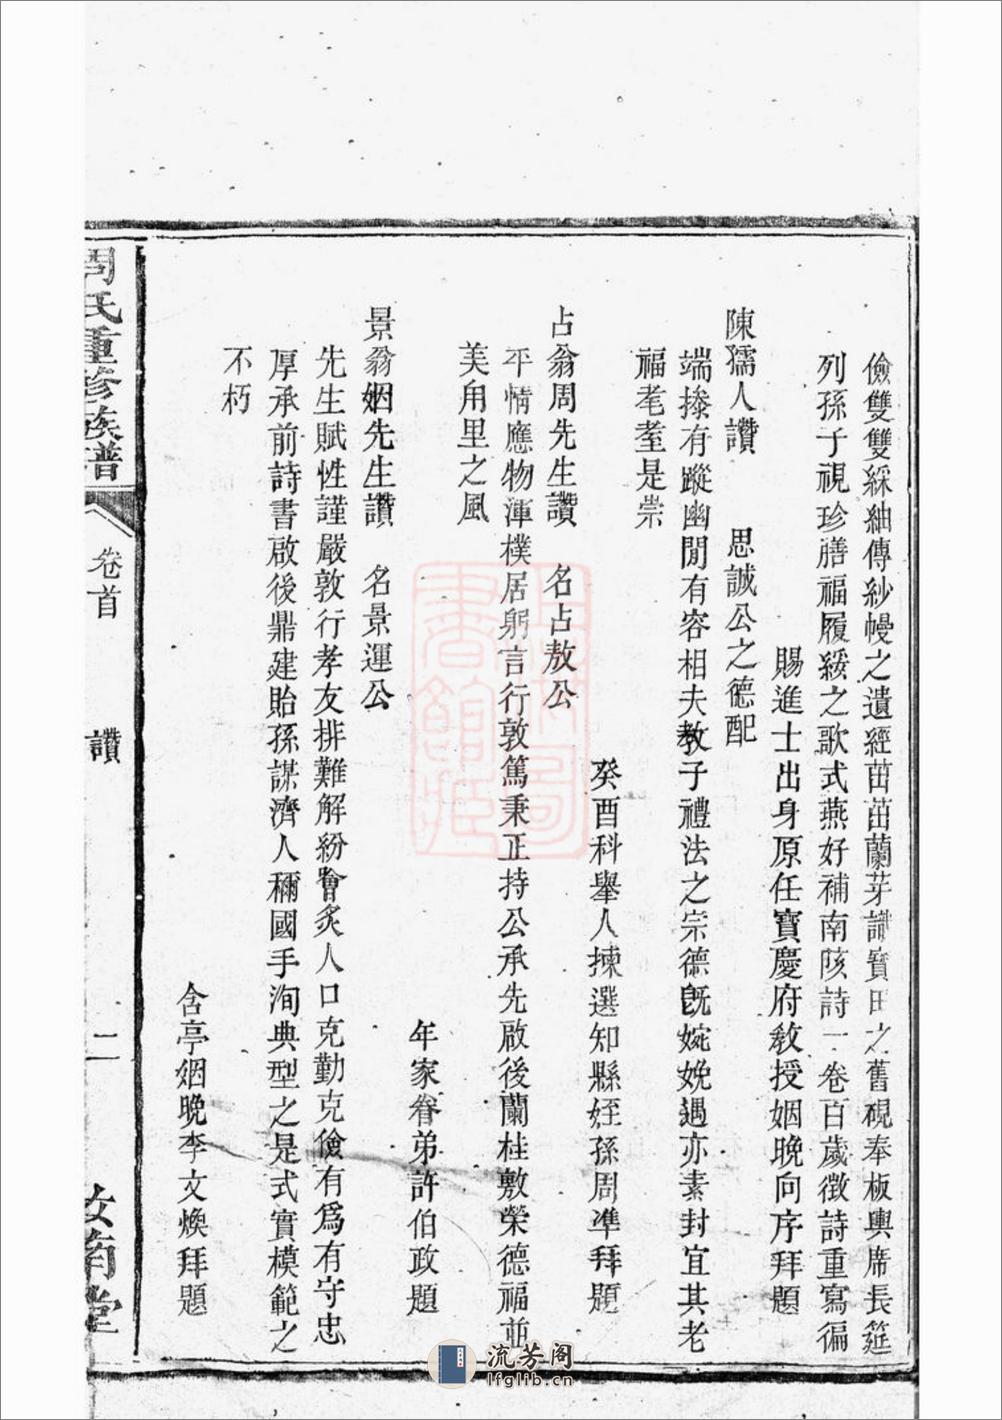 儉雙雙綵紬傳紗幔之遺經茁茁蘭芽譜寶田之舊硯奉板輿席長筵
列孫子視珍膳福履綏之歌式燕好補南陔詩一卷百歲徵詩重寫徧
賜進士出身原任寶慶府教授姻晚向序拜題
陳孺人讚　思誠公之德配
端㨗有蹤幽閒有容相夫教子禮法之宗德旣婉娩遇亦素封宜其老
福耄耋是崇
癸酉科舉人揀選知縣姪孫周準拜題
占翁周先生讚　名占敖公
平情應物渾樸居躬言行敦篤秉正持公承先啟後蘭桂敷榮德福並
美甪里之風
年家眷弟許伯政題
景翁姻先生讚　名景運公
先生賦性謹嚴敦行孝友排難解紛膾炙人口克勤克儉有為有守忠
厚承前詩書啟後鼎建貽孫謀濟人稱國手洵典型之是式實模範之
不朽
含亭姻晚李文煥拜題
周氏重修族譜
卷首
讚
二
汝南堂
流芳阁
lfglib.cn